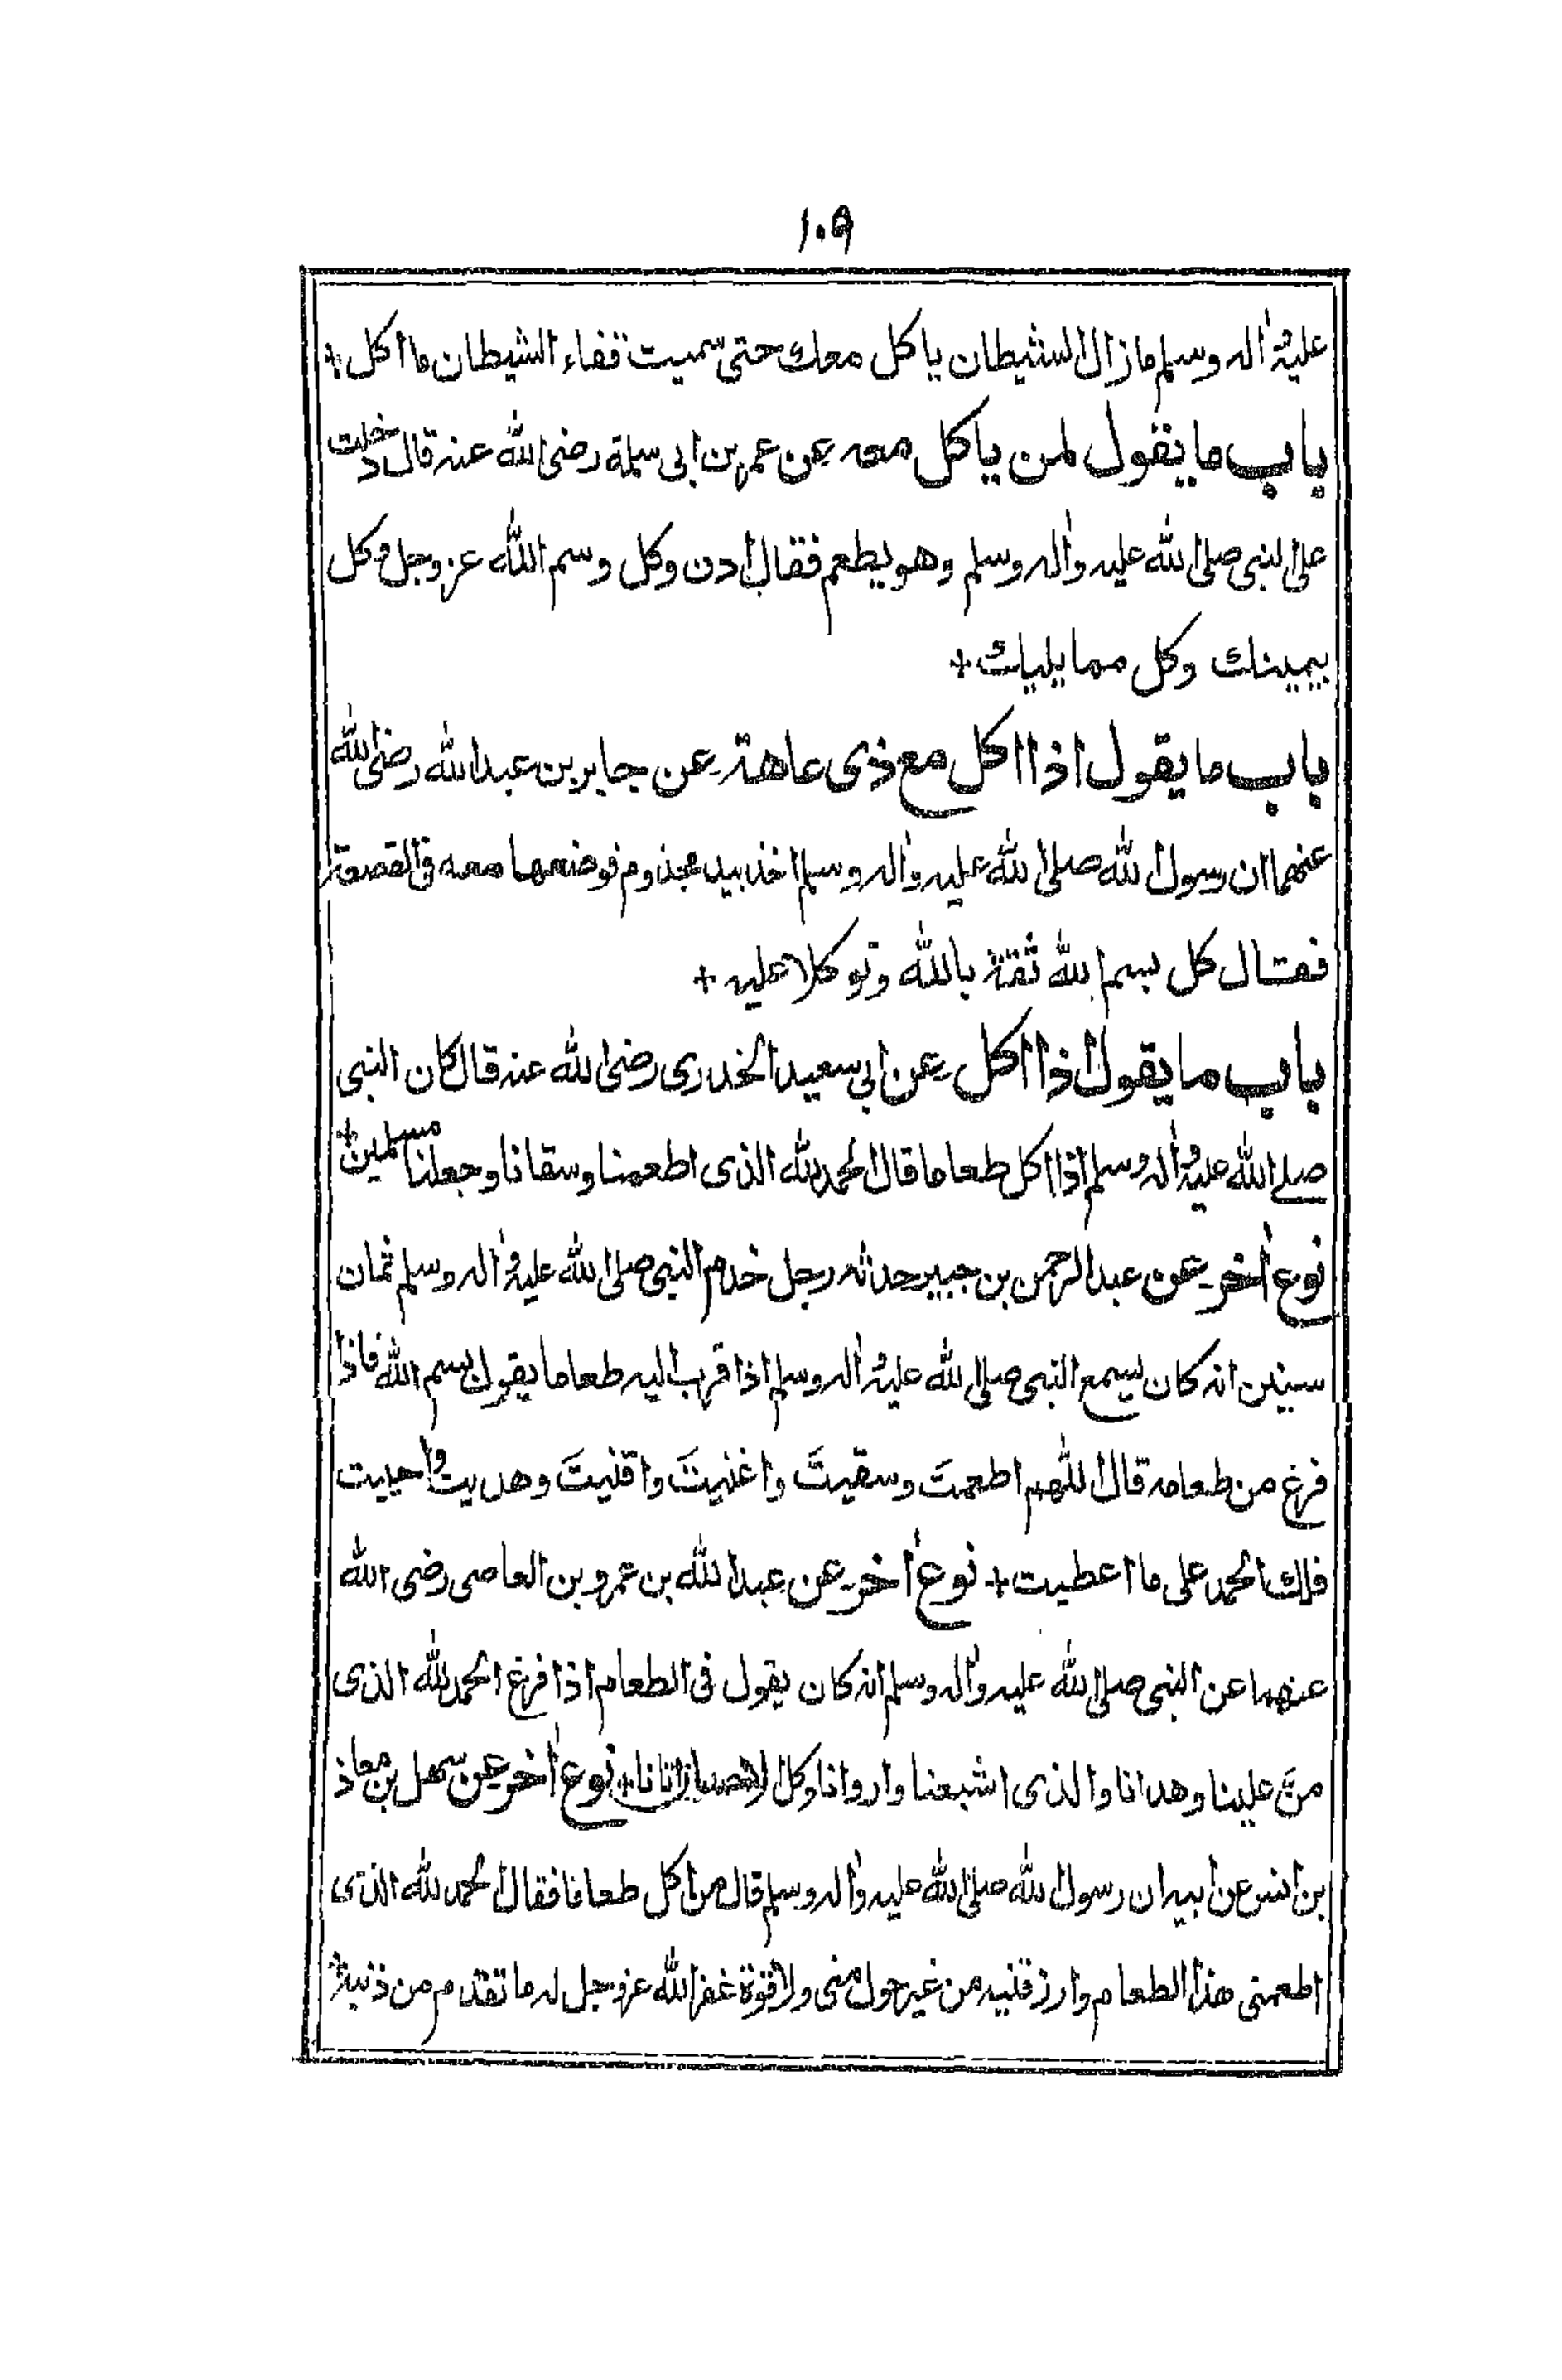 ١٠٩
عليه وآله وسلم مازال الشيطان ياكل معك حتى سميت فقاء الشيطان ما اكل +
باب ما يقول لمن ياكل معه عن عمر بن ابى سلمة رضى الله عنه قال دخلت
على النبى صلى الله عليه وآله وسلم وهو يطعم فقال ادن وكل وسم الله عز وجل وكل
بيمينك وكل مما يليك +
باب ما يقول اذا اكل مع ذى عاهة عن جابر بن عبد الله رضى الله
عنهما ان رسول الله صلى الله عليه وآله وسلم اخذ بيد مجذوم فوضعها معه فى القصعة
فقال كل بسم الله ثقة بالله وتوكلا عليه +
باب ما يقول اذا اكل عن ابى سعيد الخدرى رضى الله عنه قال كان النبى
صلى الله عليه وآله وسلم اذا اكل طعاما قال الحمد لله الذى اطعمنا وسقانا وجعلنا مسلمين +
نوع آخر عن عبد الرحمن بن جبير حدثه رجل خدم النبى صلى الله عليه وآله وسلم ثمان
سنين انه كان يسمع النبى صلى الله عليه وآله وسلم اذا قرب اليه طعاما يقول بسم الله فاذا
فرغ من طعامه قال اللهم اطعمتَ وسقيتَ واغنيتَ واقنيتَ وهديت واحييت
فلك الحمد على ما اعطيت + نوع آخر عن عبد الله بن عمرو بن العاصى رضى الله
عنهما عن النبى صلى الله عليه وآله وسلم انه كان يقول فى الطعام اذا فرغ الحمد لله الذى
منّ علينا وهدانا والذى اشبعنا واروانا وكل الاحسان اتانا + نوع آخر عن سهل بن معاذ
بن انس عن ابيه ان رسول الله صلى الله عليه وآله وسلم قال من اكل طعاما فقال الحمد لله الذى
اطعمنى هذا الطعام وارزقنيه من غير حول منى ولا قوة غفر الله عز وجل له ما تقدم من ذنبه +